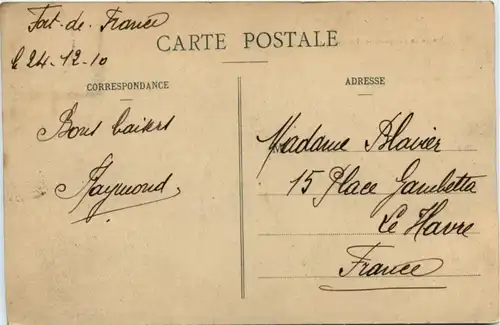 Fort-de-France
le 24-12-10
CARTE POSTALE
CORRESPONDANCE
Bons baisers
Raymond
ADRESSE
Madame Blavier
15 Place Gambetta
Le Havre
France